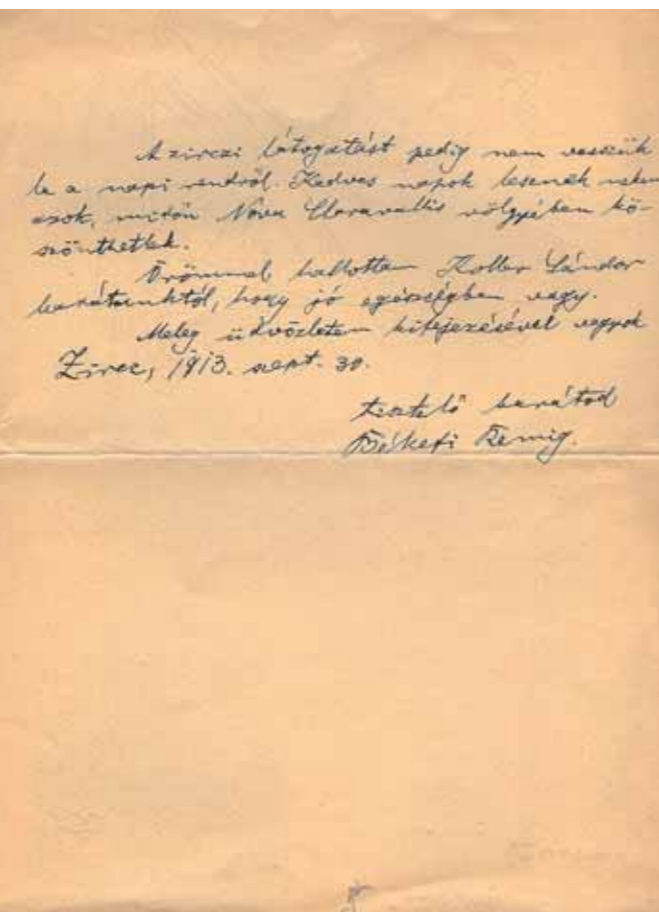 A zirczi látogatást pedig nem veszszük
le a napi rendről. Kedves napok lesznek nekem
azok, midőn Nova Claravallis völgyében kö-
szönthetlek.
Örömmel hallottam Koller Sándor
barátunktól, hogy jó egészségben vagy.
Meleg üdvözletem kifejezésével vagyok
Zircz, 1913. szept. 30.
tisztelő barátod
Békefi Remig.